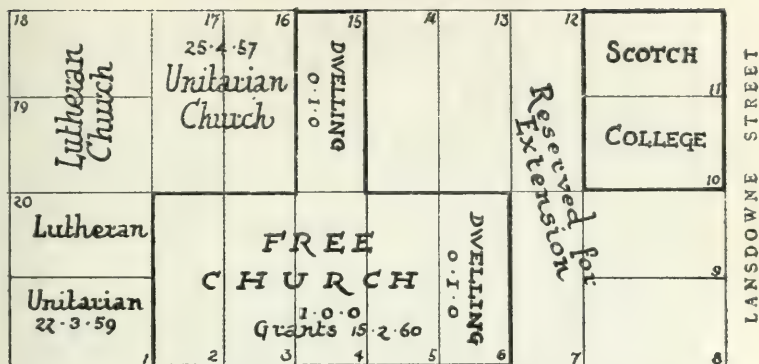 18
17
16
15
14
13
12
19
Lutheran
Church
25·4·57
Unitarian
Church
DWELLING
0·1·0
Reserved for
Extension
SCOTCH
11
COLLEGE
10
LANSDOWNE STREET
20
Lutheran
Unitarian
22·3·59
FREE
CHURCH
1·0·0
Grants 15·2·60
DWELLING
0·1·0
9
1
2
3
4
5
6
7
8